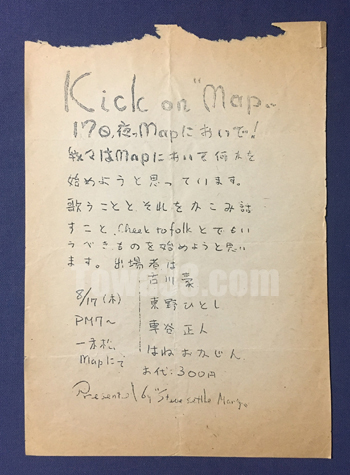 Kick on "Map"
17日夜、Mapにおいで!
我々はMapにおいて何かを
始めようと思っています。
歌うことと、それをかこみ話
すこと、Cheek to folkとでもい
うべきものを始めようと思い
ます。出場者は
古川豪
東野ひとし
車谷正人
はねおかじん
8/17(木)
PM7〜
Mapにて
お代:300円
Presented by